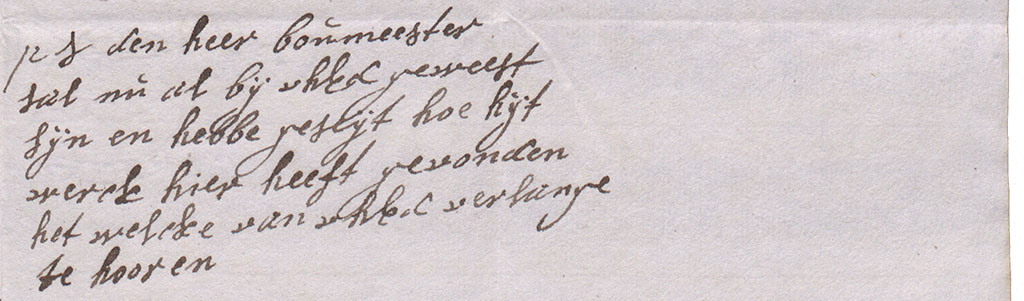 PS den heer boùmeester
sal nù al bÿ vhEd geweest
sÿn en hebbe geseÿt hoe hÿt
werck hier heeft gevonden
het welcke van vhEd verlange
te hooren